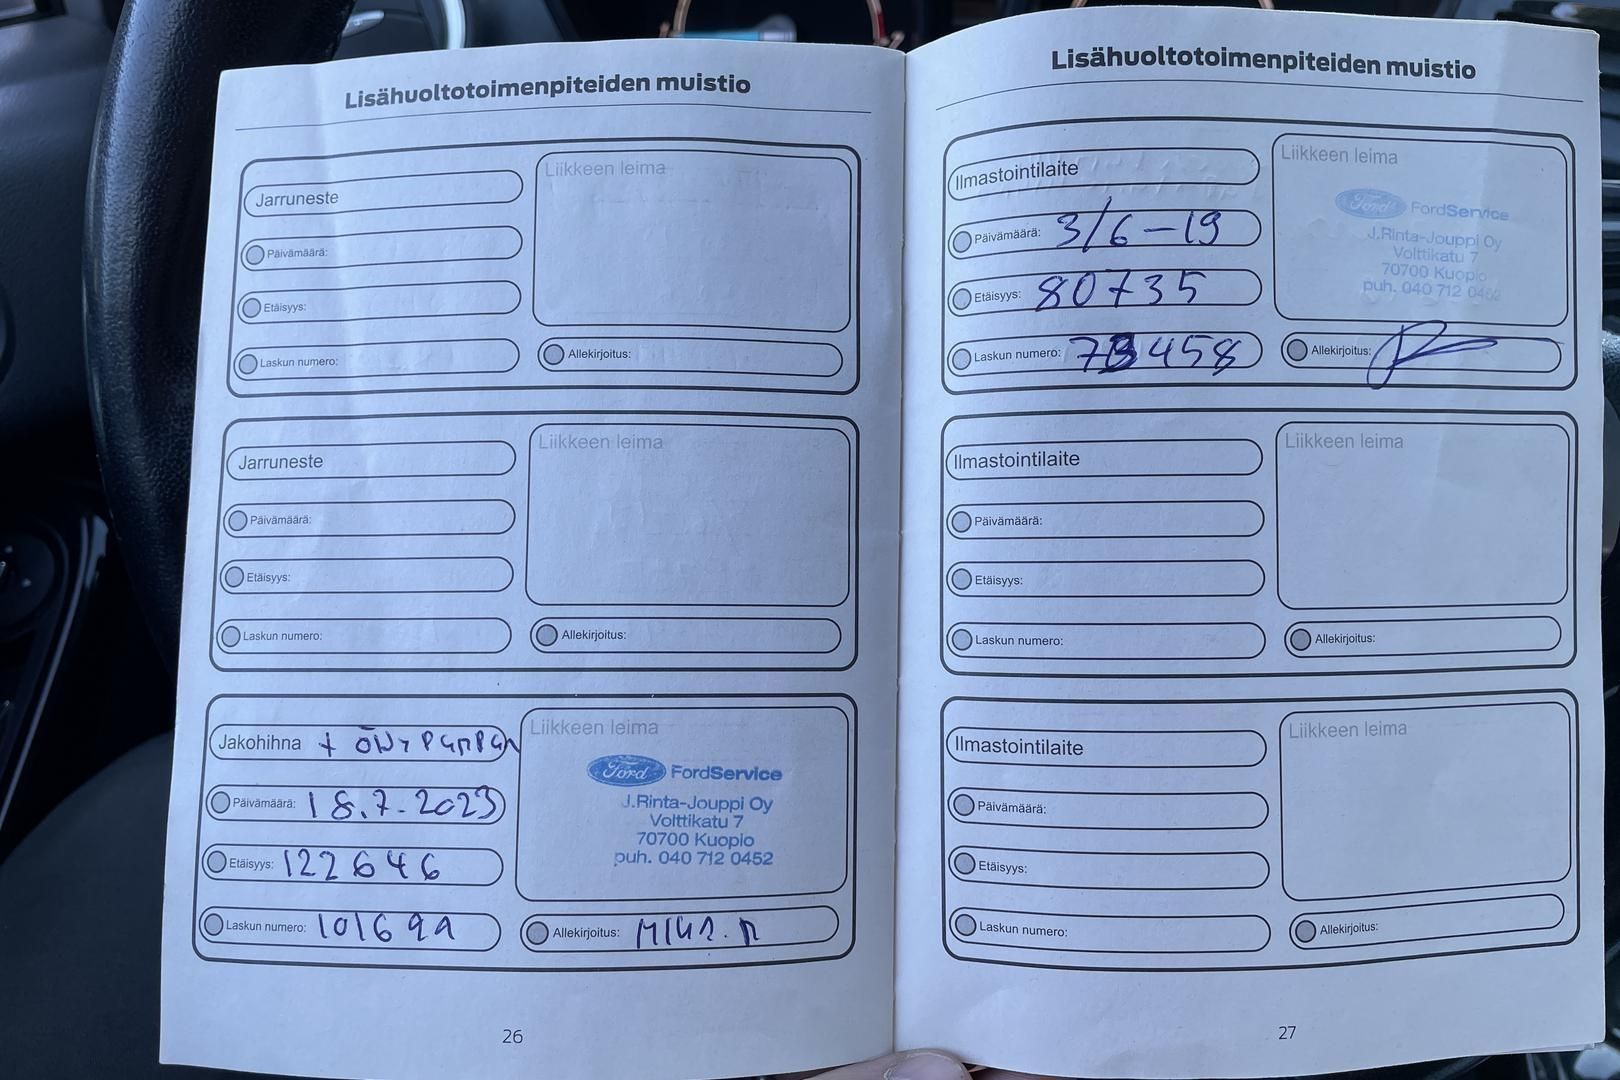 Lisähuoltotoimenpiteiden muistio
Jarruneste
Päivämäärä:
Etäisyys:
Laskun numero:
Liikkeen leima
Allekirjoitus:
Jarruneste
Päivämäärä:
Etäisyys:
Laskun numero:
Liikkeen leima
Allekirjoitus:
Jakohihna +
Päivämäärä: 18.7.2023
Etäisyys: 122646
Laskun numero:
Liikkeen leima
Ford FordService
J.Rinta-Jouppi Oy
Volttikatu 7
70700 Kuopio
puh. 040 712 0452
Allekirjoitus:
26
Lisähuoltotoimenpiteiden muistio
Ilmastointilaite
Päivämäärä: 3/6-19
Etäisyys: 80735
Laskun numero:
Liikkeen leima
Ford FordService
J.Rinta-Jouppi Oy
Volttikatu 7
70700 Kuopio
puh. 040 712 0452
Allekirjoitus:
Ilmastointilaite
Päivämäärä:
Etäisyys:
Laskun numero:
Liikkeen leima
Allekirjoitus:
Ilmastointilaite
Päivämäärä:
Etäisyys:
Laskun numero:
Liikkeen leima
Allekirjoitus:
27